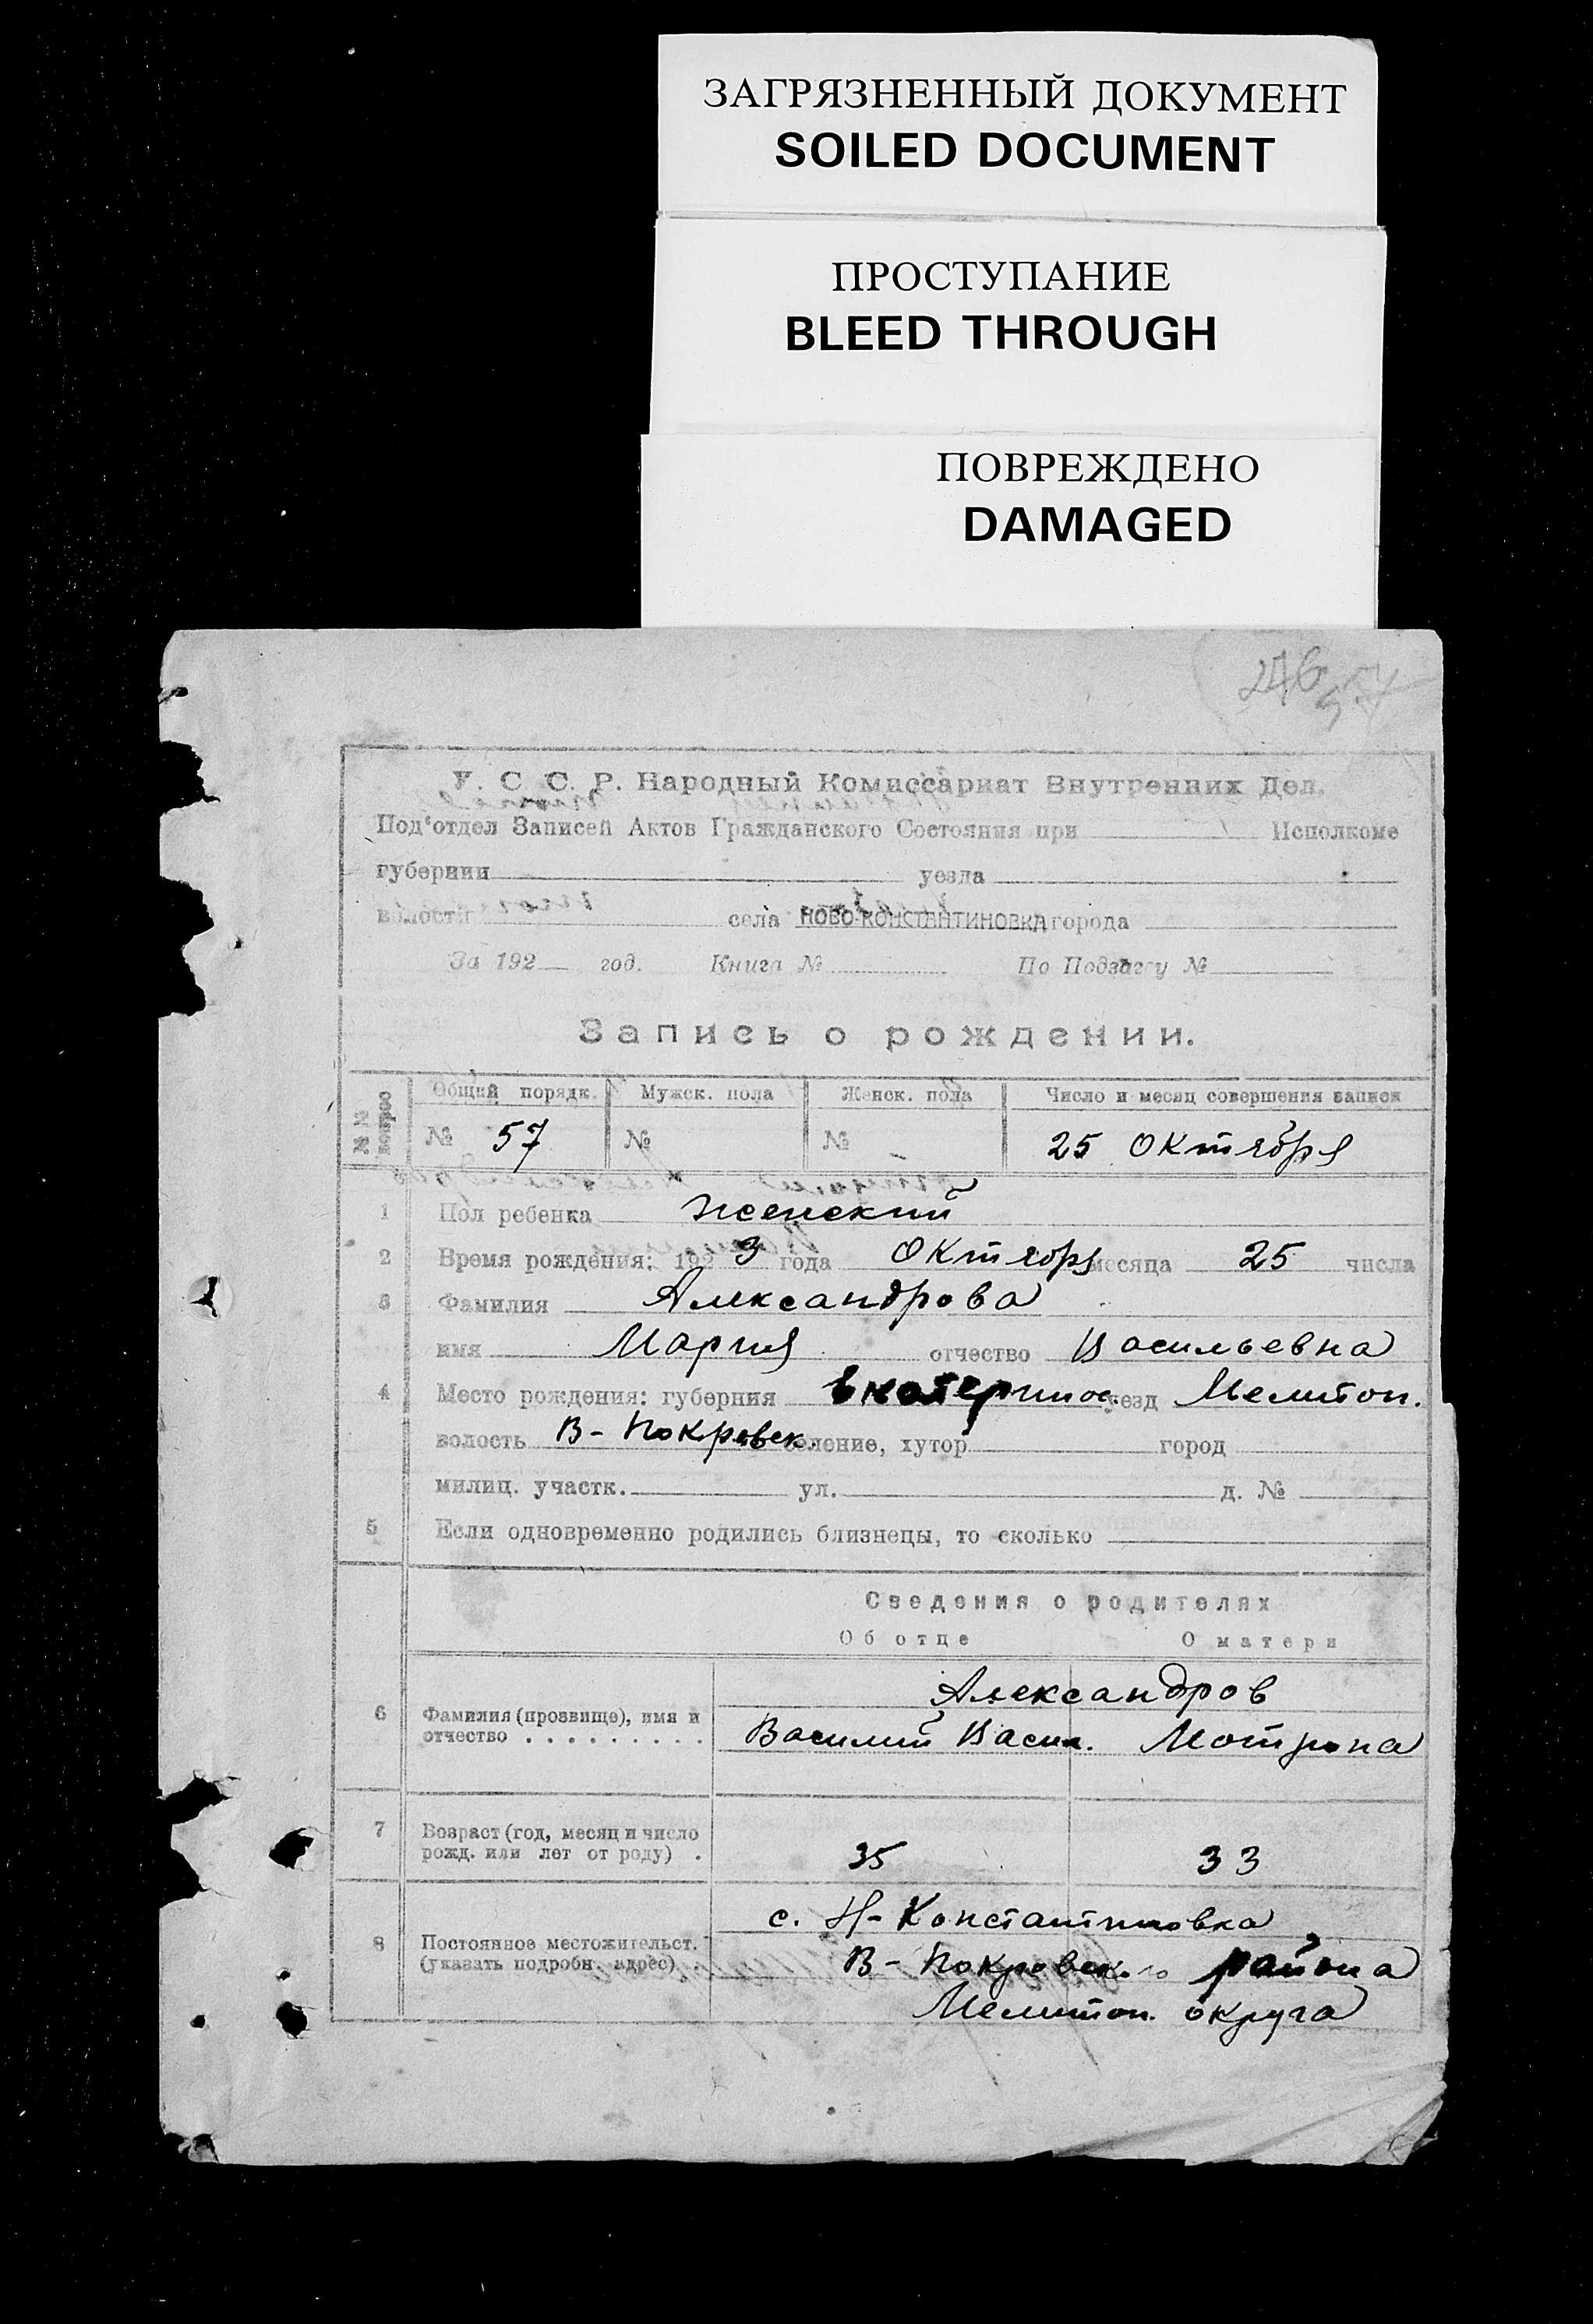 ЗАГРЯЗНЕННЫЙ ДОКУМЕНТ
SOILED DOCUMENT
ПРОСТУПАНИЕ
BLEED THROUGH
ПОВРЕЖДЕНО
DAMAGED
246
57
У. С. С. Р. Народный Комиссариат Внутренних Дел.
Под'отдел Записей Актов Гражданского Состояния при Исполкоме
губернии уезда
волости села НОВО-КОНСТАНТИНОВКА города
За 192 год. Книга № По Подзагсу №
Запись о рождении.
№№ вопрос Общий порядк. Мужск. пола Женск. пола Число и месяц совершения записи
№ 57 № № 25 Октября
1 Пол ребенка Женский
2 Время рождения: 1923 года Октября месяца 25 числа
3 Фамилия Александрова
имя Мария отчество Васильевна
4 Место рождения: губерния Екатеринос. уезд Мелитоп.
волость В-Покровск. селение, хутор город
милиц. участк. ул. д. №
5 Если одновременно родились близнецы, то сколько
Сведения о родителях
Об отце О матери
Александров
6 Фамилия (прозвище), имя и
отчество . . . . . . . . . Василий Васил. Мотрона
7 Возраст (год, месяц и число
рожд. или лет от роду) . 35 33
с. Н-Константиновка
8 Постоянное местожительст.
(указать подробн. адрес) . В-Покровского района
Мелитоп. округа